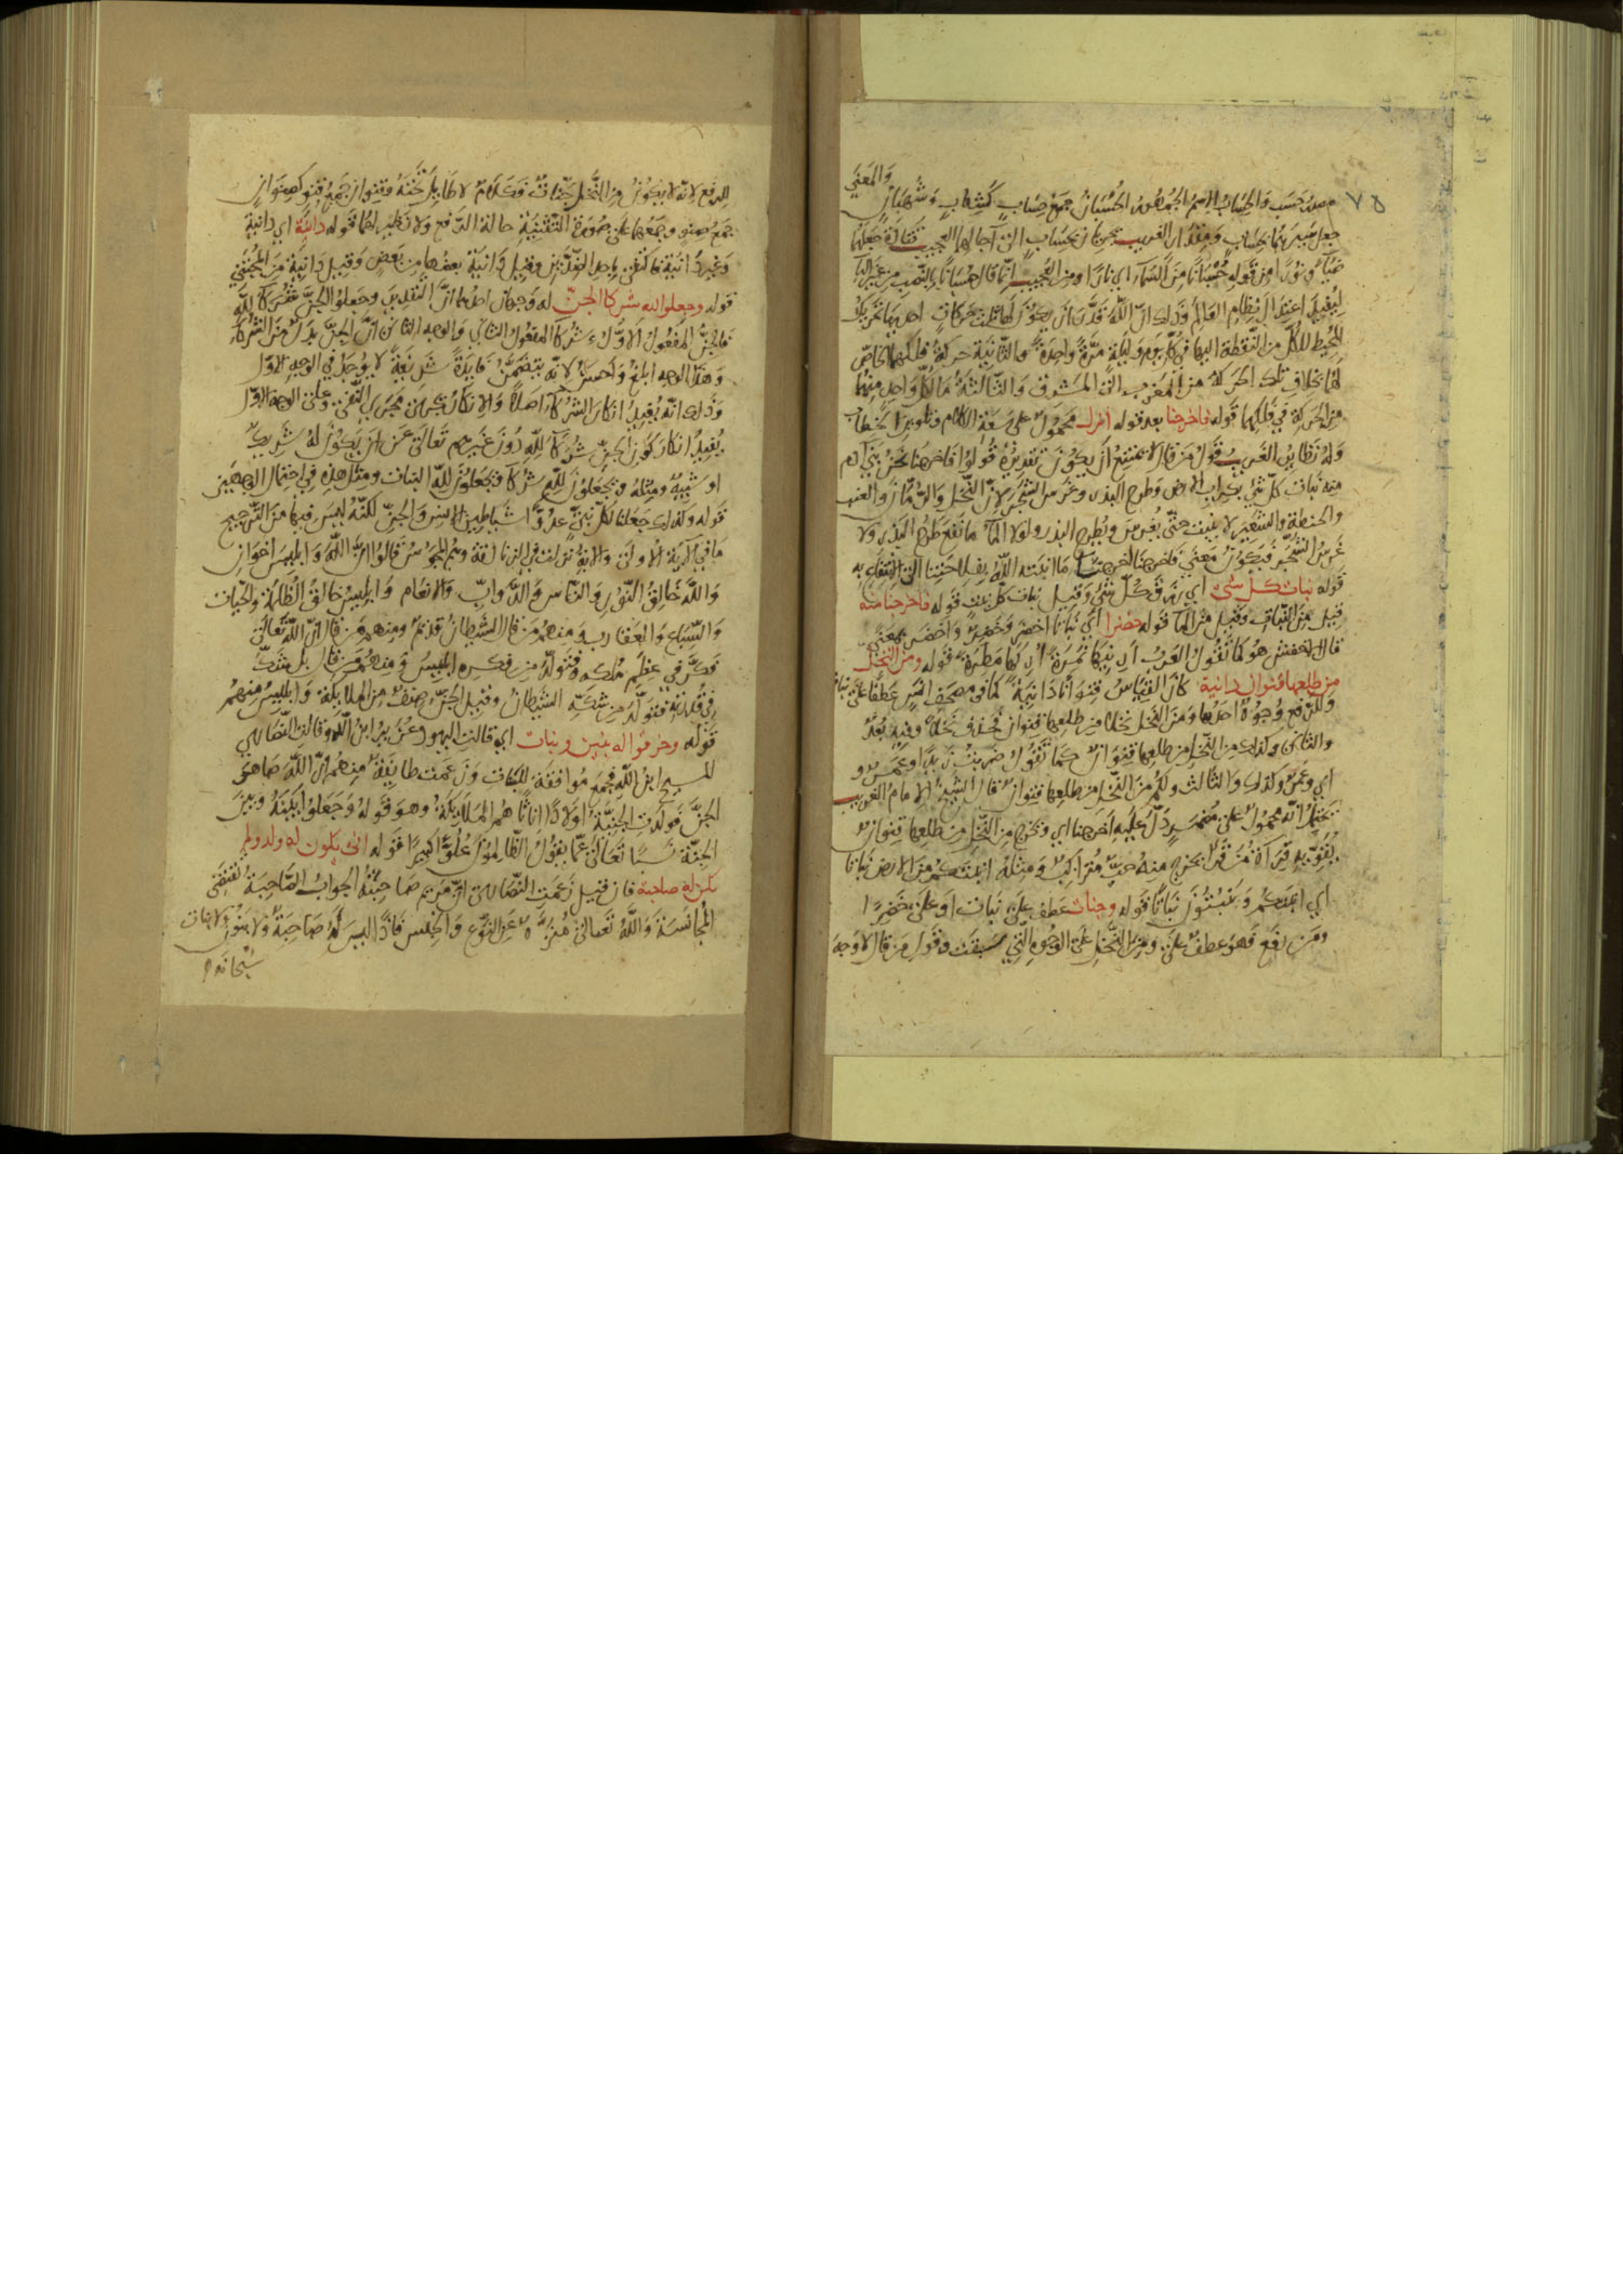 والمعنى
٧٥ مصدر حسب والحساب الاسم الجمهور الحسبان جمع حساب كشهاب وشهبان
جعل سيرهما بحساب ومقدار الغريب يجريان بحساب الى آجالهما العجيب قتادة جعلهما
ضياء ونورا من قوله حسبانا من السماء اي نارا ومن العجيب انما قال حسبانا بالنصب من غير الباء
ليفيد اعتدال نظام العالم وذلك ان الله قدر ان يكون لهما ثلاث حركات احديها تحريك
المحيط للكل من النقطة اليها في كل يوم وليلة مرة واحدة والثانية حركة فلكهما الخاص
لهما بخلاف تلك الحركة من المغرب الى المشرق والثالثة ما لكل واحد منهما
من الحركة في فلكهما قوله فاخرجنا بعد قوله انزل محمول على سعة الكلام وتلوين الخطاب
وله نظاير الغريب قول من قال لا يمتنع ان يكون تقديره قولوا فاخرجنا نحن بني آدم
منه نبات كل شي بحراب الارض وطرح البذر وغرس الشجر لان النخل والرمان والعنب
والحنطة والشعير لا ينبت حتى يغرس ويطرح البذر ولولا الماء ما نفع طرح البذر ولا
غرس الشجر فيكون معنى فاخرجنا اخرجت ما انبته الله بفلاحتنا الى الانتفاع به
قوله نبات كل شي اي رزق كل شي وقيل نبات كل نبت قوله فاخرجنا منه
قيل من النبات وقيل من الماء قوله خضرا اي نباتا اخضر وخضر واخضر بمعنى
قال الاخفش هو كما تقول العرب ارنيها نمرة اركها مطرة قوله ومن النخل
من طلعها قنوان دانية كان القياس قنوانا دانية كما في مصحف انس عطفا على نبات
وللرفع وجوه احدها ومن النخل نخلا من طلعها قنوان فحذف نخلا وفيه بعد
والثاني وكذلك من النخل من طلعها قنوان كما تقول ضربت زيدا وعمرو
اي وعمرو كذلك والثالث ولكم من النخل من طلعها قنوان قال الشيخ الامام الغريب
يحتمل انه محمول على مضمر دل عليه اخرجنا اي ونخرج من النخل من طلعها قنوان
يقويه قراءة من قرأ يخرج منه حب متراكب ومثله انبتكم من الارض نباتا
اي انبتكم وتنبتون نباتا قوله وجنات عطف على نبات او على خضرا
ومن رفع فهو عطف على ومن النخل على الوجوه التي سبقت وقول من قال لا وجه
للرفع لانه لا يكون من النخل جنات فكلام لا طايل تحته وقنوان جمع قنو كصنوان
جمع صنو وجمعها على صورة التثنية حالة الرفع ولا نظير لهما قوله دانية اي دانية
وغير دانية فاكتفى باحد الضدين وقيل دانية بعضها من بعض وقيل دانية من المجتنى
قوله وجعلوا لله شركا الجن له وجهان احدهما ان التقدير وجعلوا الجن شركا لله
فالجن المفعول الاول وشركا المفعول الثاني والوجه الثاني ان الجن بدل من الشركاء
وهذا الوجه ابلغ واحسن لانه يتضمن فايدة شريفة لا يوجد في الوجه الاول
وذلك انه يفيد انكار الشركاء اصلا والانكار يجري مجرى النفي وعلى الوجه الاول
يفيد انكار كون الجن شركا لله دون غيرهم تعالى عن ان يكون له شريك
او شبيه ومثله ويجعلون لله شركا ويجعلون لله البنات ومثل هذه في احتمال الوجهين
قوله وكذلك جعلنا لكل نبي عدوا شياطين الانس والجن لكنه ليس فيها من الترجيح
ما في الآية الاولى والاية نزلت في الزنادقة وهم المجوس قالوا ان الله وابليس اخوان
والله خالق النور والناس والدواب والانعام وابليس خالق الظلمة والحيات
والسباع والعقارب ومنهم من قال الشيطان قديم ومنهم من قال ان الله تعالى
فكر في عظم ملكه فتولد من فكره ابليس ومنهم من قال بل شك
في قدرته فتولد من شكه الشيطان وقيل الجن صنف من الملايكة وابليس منهم
قوله وخرقوا له بنين وبنات اي قالت اليهود عزير ابن الله وقالت النصارى
المسيح ابن الله فجمع موافقة للبنات وزعمت طايفة منهم ان الله صاهر
الجن فولدت الجنية اولادا اناثا هم الملايكة وهو قوله وجعلوا بينه وبين
الجنة نسبا تعالى عما يقول الظالمون علوا كبيرا قوله انى يكون له ولد ولم
تكن له صاحبة فان قيل زعمت النصارى ان مريم صاحبته الجواب الصاحبة تقتضي
المجانسة والله تعالى منزه عن النوع والجنس فاذا ليس له صاحبة ولا بنون ولا بنات
سبحانه